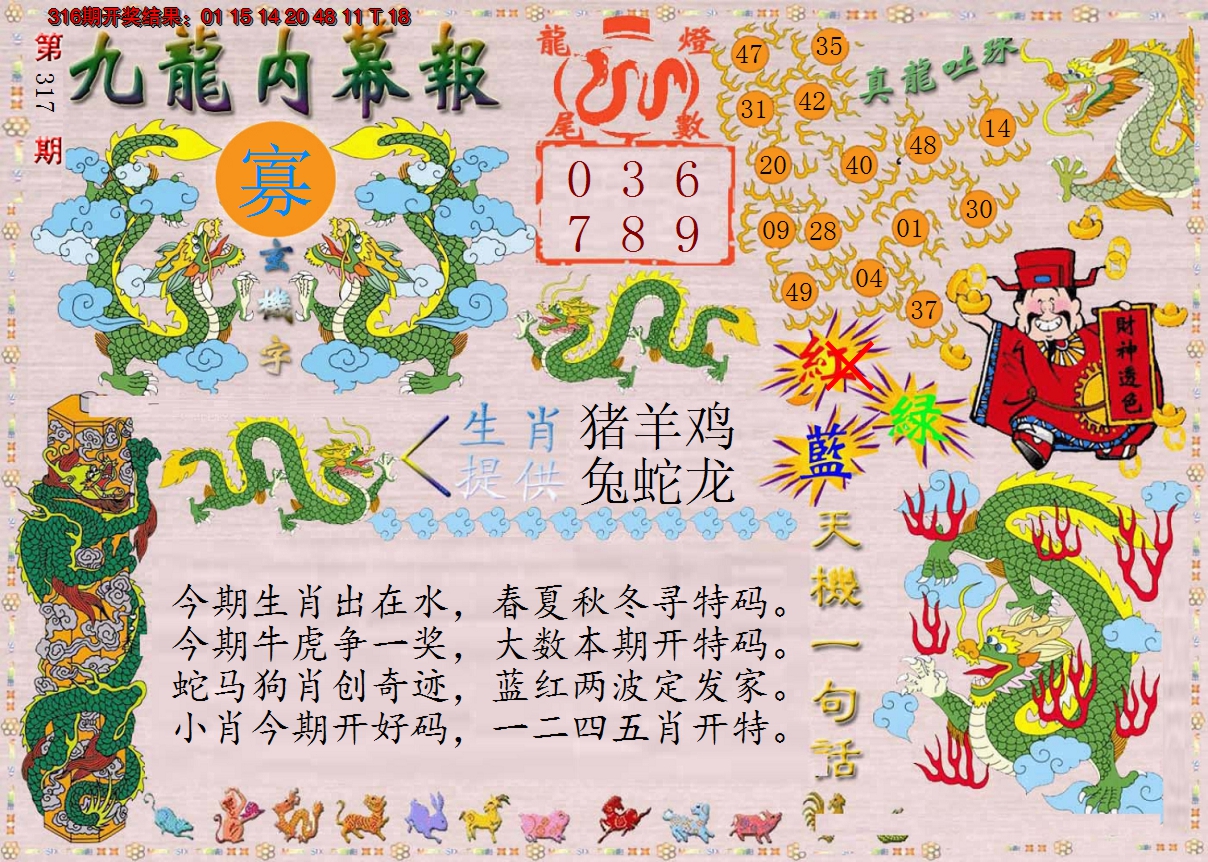 316期开奖结果：01 15 14 20 48 11 T 18
第317期
九龍内幕報
寡
玄機字
龍燈
尾數
0 3 6
7 8 9
真龍吐珠
47 35
31 42
20 40 48 14
09 28 01 30
49 04 37
紅
綠
藍
財神透色
生肖提供
猪羊鸡
兔蛇龙
天機一句话
今期生肖出在水，春夏秋冬寻特码。
今期牛虎争一奖，大数本期开特码。
蛇马狗肖创奇迹，蓝红两波定发家。
小肖今期开好码，一二四五肖开特。